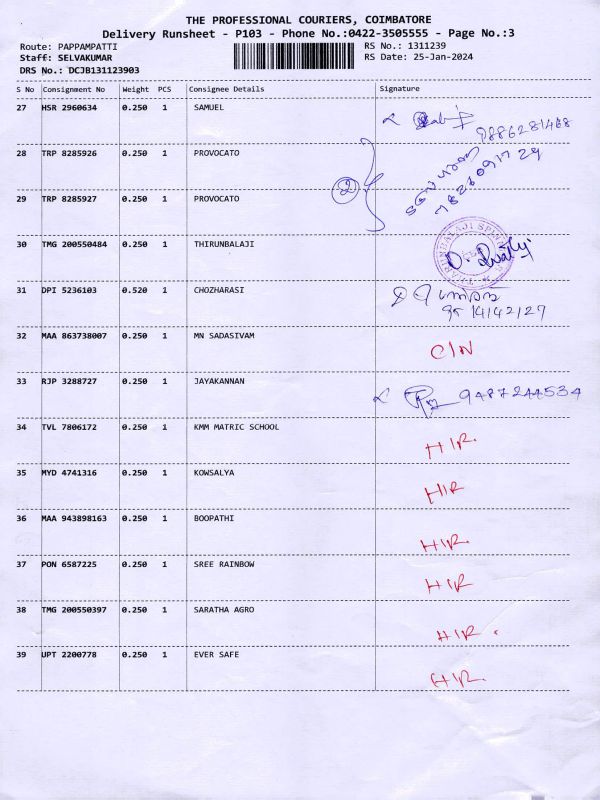 THE PROFESSIONAL COURIERS, COIMBATORE
Delivery Runsheet - P103 - Phone No.:0422-3505555 - Page No.:3
Route: PAPPAMPATTI RS No.: 1311239
Staff: SELVAKUMAR RS Date: 25-Jan-2024
DRS No.: DCJB131123903
S No Consignment No Weight PCS Consignee Details Signature
27 HSR 2960634 0.250 1 SAMUEL
9886281468
28 TRP 8285926 0.250 1 PROVOCATO
2
29 TRP 8285927 0.250 1 PROVOCATO
30 TMG 200550484 0.250 1 THIRUNBALAJI
31 DPI 5236103 0.520 1 CHOZHARASI
9514142127
32 MAA 863738007 0.250 1 MN SADASIVAM
C/N
33 RJP 3288727 0.250 1 JAYAKANNAN
9487244534
34 TVL 7806172 0.250 1 KMM MATRIC SCHOOL
H/R.
35 MYD 4741316 0.250 1 KOWSALYA
H/R
36 MAA 943898163 0.250 1 BOOPATHI
H/R.
37 PON 6587225 0.250 1 SREE RAINBOW
H/R
38 TMG 200550397 0.250 1 SARATHA AGRO
H/R.
39 UPT 2200778 0.250 1 EVER SAFE
H/R.